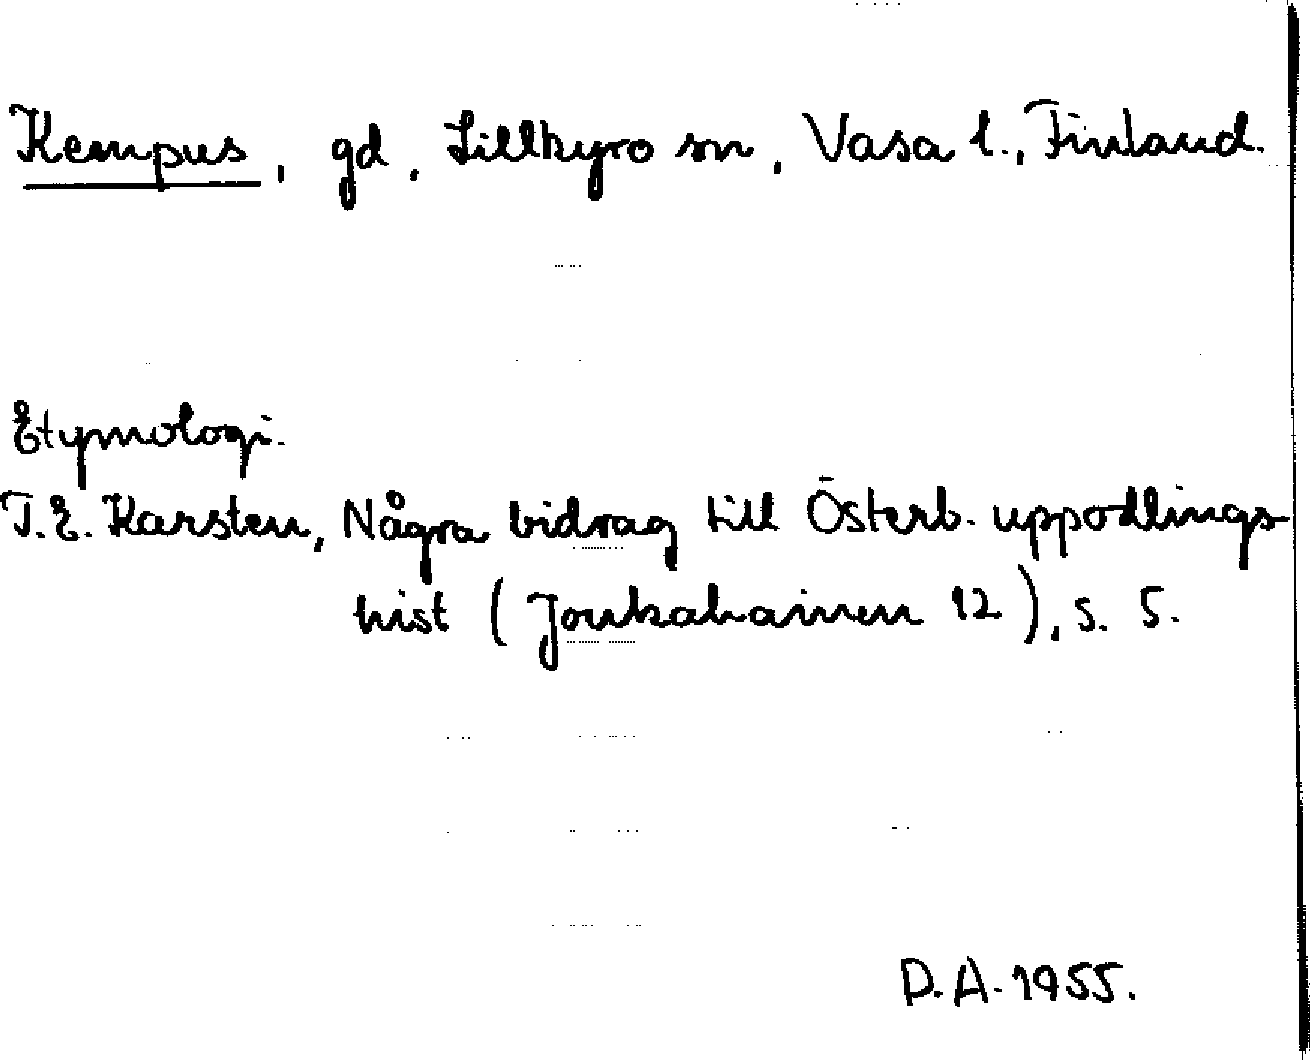 Kempus, gd, Lillkyro sn, Vasa l., Finland.
Etymologi.
T.E. Karsten, Några bidrag till Österb. uppodlings-
hist (Joukahainen 12), s. 5.
D.A. 1955.